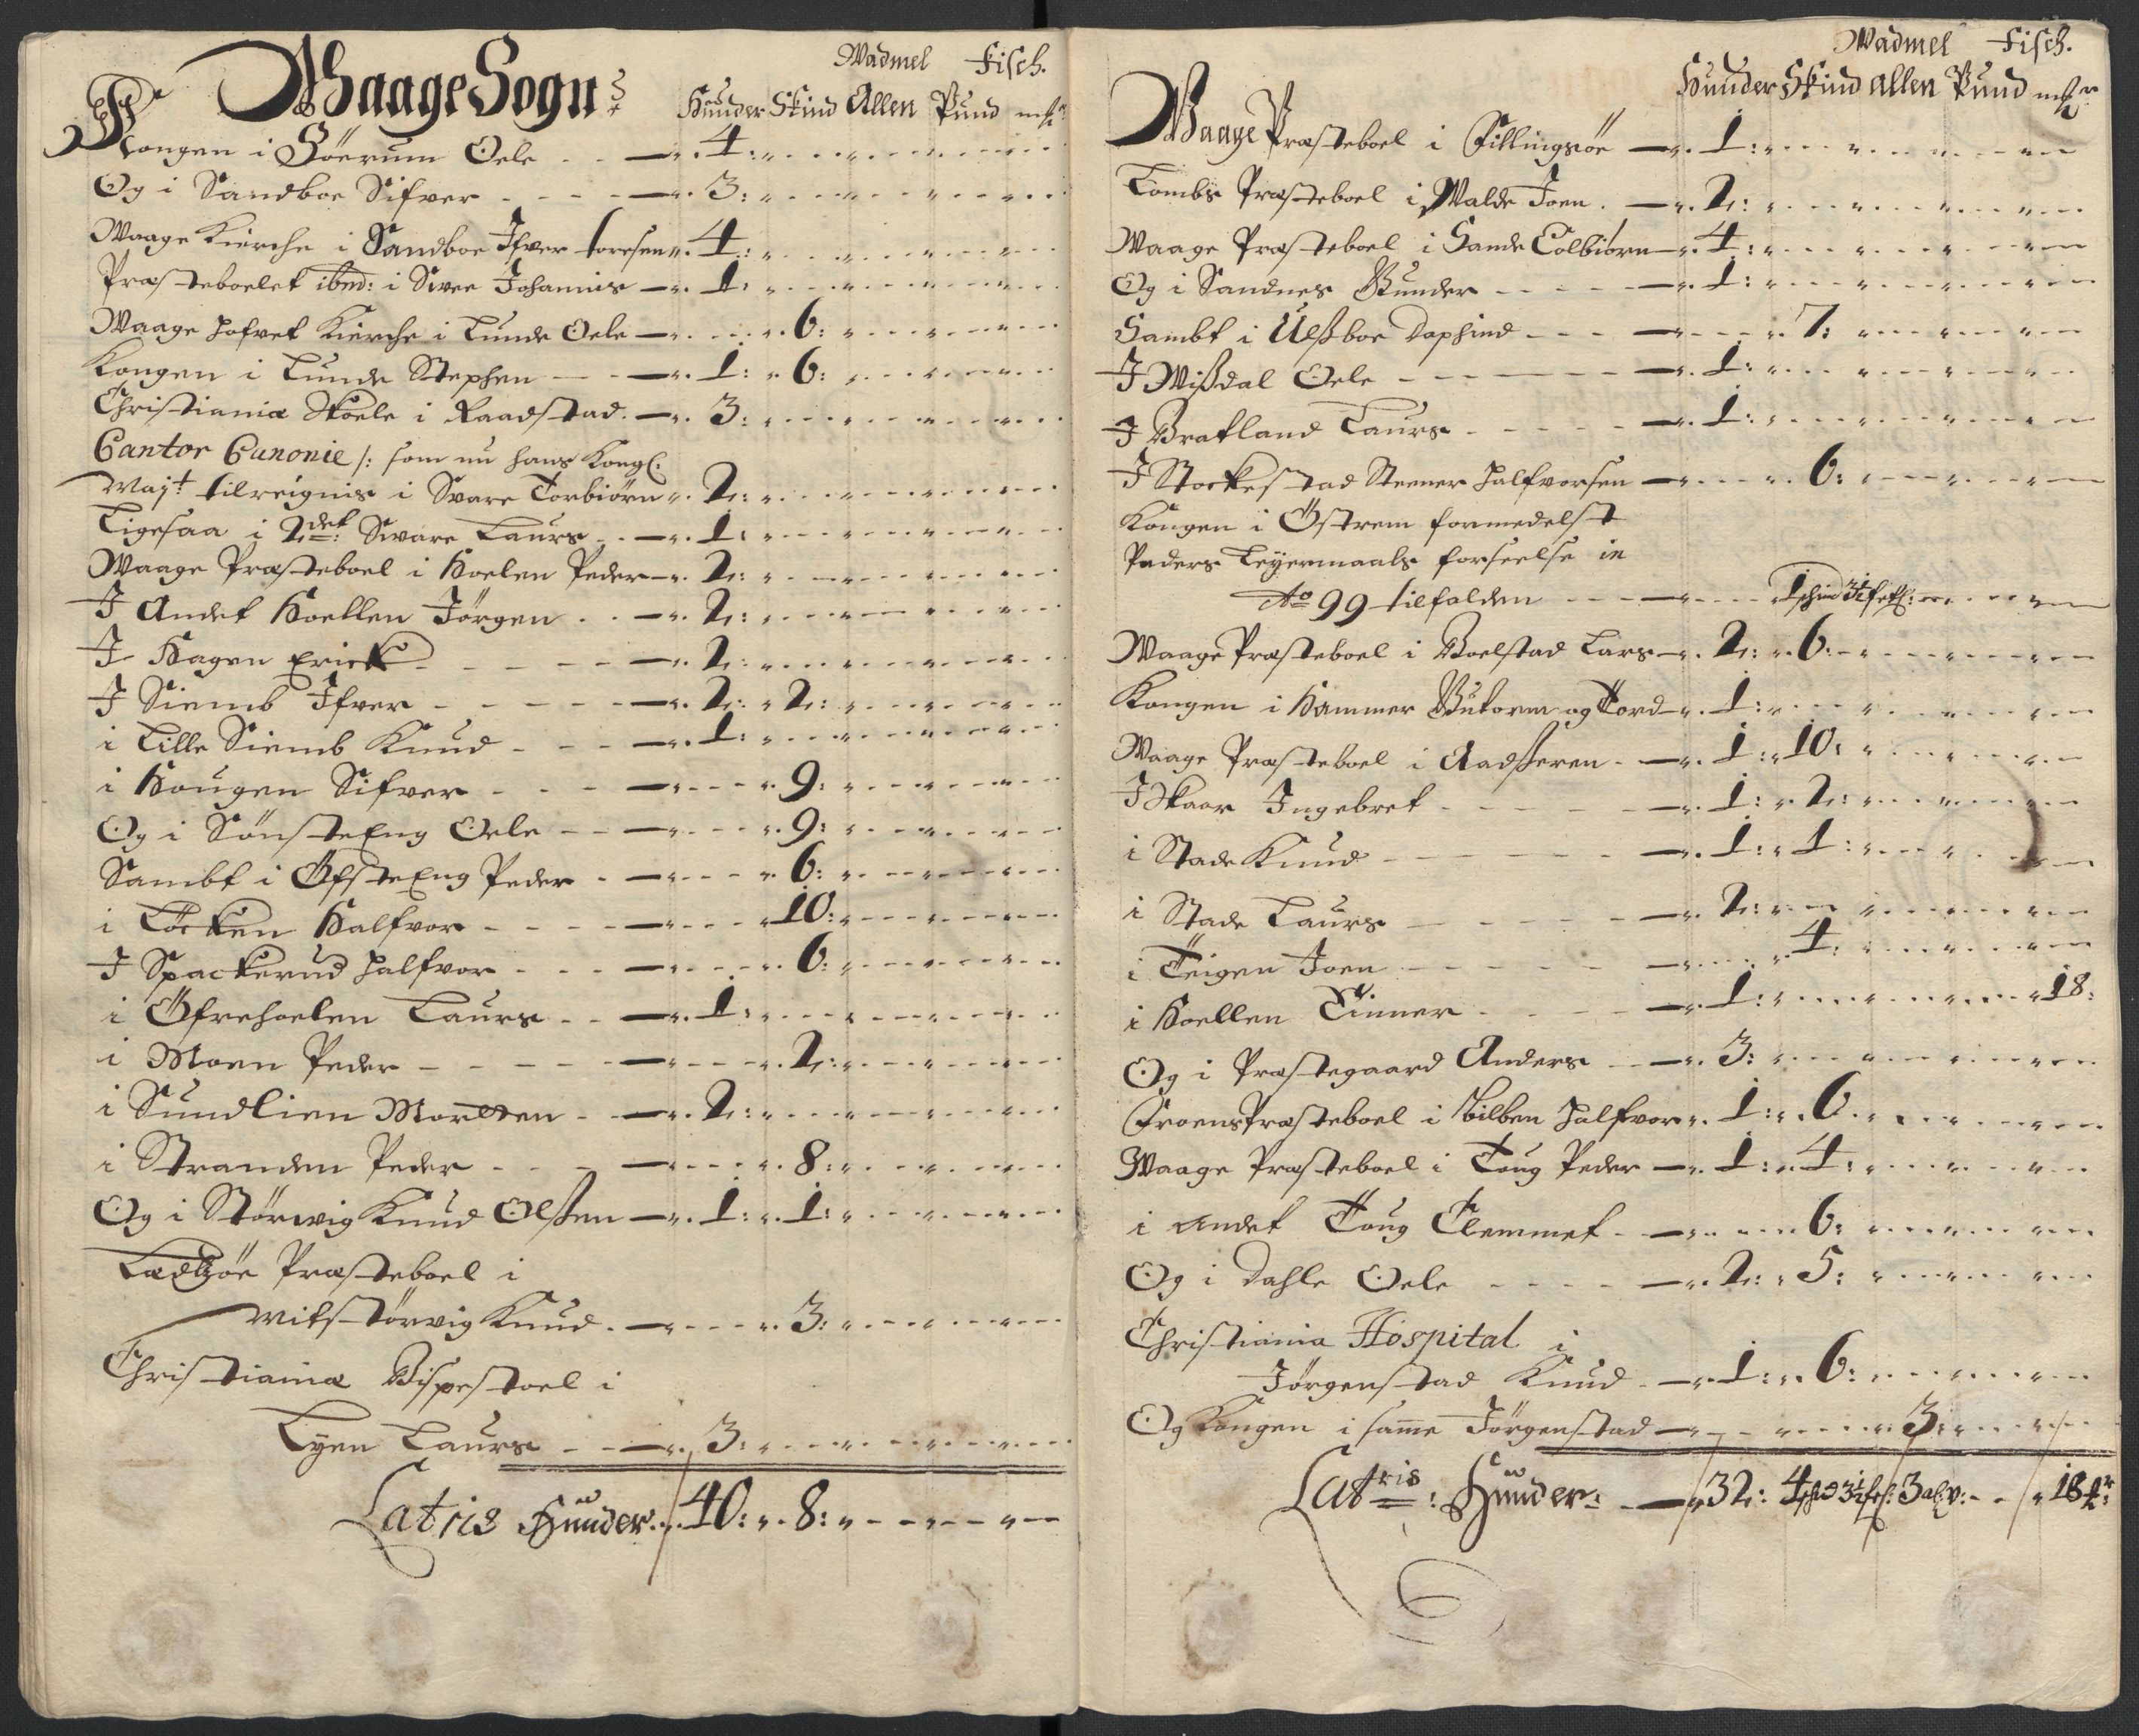 Waage Sogn
Wadmel Fisch.
Hunder Skind Allen Pund mk
Kongen i Söerum Oele - - 4:
Og i Sandboe Sifver - - - 3:
Waage Kierche i Sandboe Ifver toresen 4:
Præsteboelet ibed: i Svee Johannis - 1:
Waage hofvet Kierche i Lunde Oele - 6:
Kongen i Lunde Stephen - - 1: 6:
Christianiæ Skoele i Raadstad - 3:
Cantor Canonie /: som nu hans Kongl:
Mayt tilreignis i Svare Torbiörn 2:
Ligesaa i 2det: Svare Laurs - 1:
Waage Præsteboel i Hoelen Peder - 2:
I Andet Hoellen Jörgen - - 2:
I Hagen Erick - - - 2:
I Siemb Ifver - - - 2: 2:
i Lille Siemb Knud - - - 1:
i Hougen Sifver - - - 9:
Og i Sönste Eng Oele - - 9:
Sambt i Öfste Eng Peder - 6:
i Löcken Halfvor - - - 10:
I Spackerud Halfvor - - - 6:
i Öfrehoelen Laurs - - 1:
i Moen Peder - - - 2:
i Sundlien Morten - - 2:
i Stranden Peder - - - 8:
Og i Störvig Knud Olßen - 1: 1:
Ladzöe Præsteboel i
Störvig Knud - 3:
Christianiæ Bispestoel i
Lyen Laurs - - 3:
Latris Hunder 40: 8:
Wadmel Fisch.
Hunder Skind allen Pund mkr
Waage Præsteboel i Fillingsöe - 1:
Tombs Præsteboel i Walde Joen - 2:
Waage Præsteboel i Sande Colbiörn - 4:
Og i Sandnes Gunder - - - 1:
Sambt i Ulßboe Daphind - - - 7:
I Wißdal Oele - - - 1:
I Bratland Laurs - - - 1:
I Stockestad Steener Halfvorsen - 6:
Kongen i Östrem formedelst
Peders Leyermaals forseelse in
Ao 99 tilfalden - - 1 schind 3½
Waage Præsteboel i Boelstad Lars - 2: 6:
Kongen i Hammer Guttorm og Tord - 1:
Waage Præsteboel i Aadßeren - 1: 10:
I Skaar Ingebret - - - 1: 2:
i Stade Knud - - - 1: 1:
i Stade Laurs - - - 2:
i Teigen Joen - - - 4:
i Hoellen Einner - - - 1: 18:
Og i Præstegaard Anders - 3:
Froens Præsteboel i Bilben Halfvor 1: 6
Waage Præsteboel i Toug Peder - 1: 4:
i Andet Toug Clemmet - 6:
Og i Dahle Oele - - - 2: 5:
Christiania Hospital i
Jörgenstad Knud - 1: 6:
Og Kongen i samme Jörgenstad - 3:
Latris: Hunder: - 32: 4 3½ 3 al: v: - 18